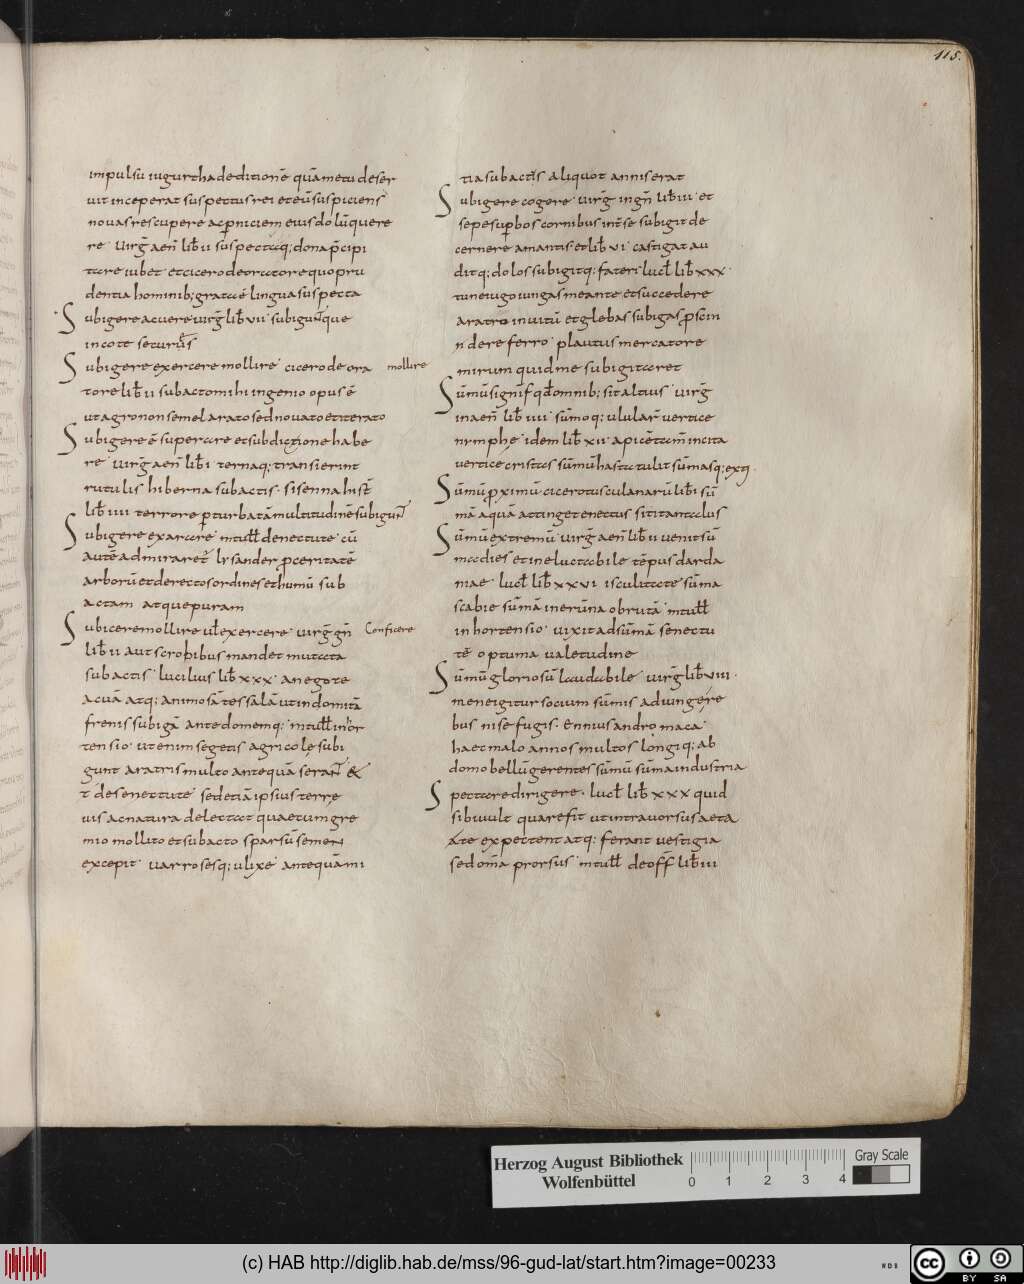 115.
impulsū iugurtha deditionē quā metu deser
uit inceperat suspectus rei et eū suspiciens
nouas res cupere ac pniciem eius dolū quere
re uirḡ aen̄ lib̄ ii suspectaq; dona p̄cipi
tare iubet et cicero de oratore quo pru
dentia hominib; grata ē lingua suspecta
Subigere acuere uirḡ lib̄ vii subigunt̄ que
in cote secur̄is
Subigere exercere mollire cicero de ora
mollire
tore lib̄ ii subacto mihi ingenio opus ē
ut agro non semel arato sed nouato et iterato
Subigere ē superare et sub dictione habe
re uirḡ aen̄ lib̄ i ternaq; transierint
rutulis hiberna subactis sisenna hist̄
lib̄ iiii terrore pturbatā multitudinē subigunt̄
Subigere exarare m tull̄ de nectute cū
autē admiraret̄ lysander pceritatē
arborū et derectos ordines et humū sub
actam atque puram
Subicere mollire ul̄ exercere uirḡ gn̄
Conficere
lib̄ ii aut scrobibus mandet mutata
subactis lucilius lib̄ xxx anegote
acuā atq; animosā tessalā ut indomitā
frenis subigā ante domemq; m tull̄ in hor
tensio ut enim segetis agricole subi
gunt aratris multo antequā seran̄t &
t de senectute sed etiā ipsius terre
uis ac natura delectat quae tum gre
mio mollito et subacto sparsū semen
excepit uarro sesq; ulixe antequā mi
tia subactis aliquot anni serat
Subigere cogere uirḡ in gn̄ lib̄ iii et
sepe supbos cornibus int̄ se subigit de
cernere amantis et lib̄ vi castigat au
ditq; dolos subigitq; fateri lucl̄ lib̄ xxx
tun eiugo iungas me ante et succedere
aratro inuitū et glebas subigas pscin
n dere ferro plautus mercatore
mirum quid me subigitaret
Sūmū signif̄ qd̄ omnib; sit altius uirḡ
in aen̄ lib̄ iiii sūmoq; ulular̄ uertice
nymphe idem lib̄ xii apicē tam̄ incita
uertice cristas sūmū hasta tulit sūmasq; ex q
Sūmū pximū cicero tusculanarū lib̄ i sū
mā aquā attinget enectus siti tantalus
Sūmū extremū uirḡ aen̄ lib̄ ii uenit sū
ma dies et ineluctabile tēpus darda
niae lucl̄ lib̄ xxvi isculitate sūma
scabie sūmā in erūna obrutā m tull̄
in hortensio uixit ad sūmā senectu
tē optuma ualetudine
Sūmū gloriosū laudabile uirḡ lib̄ viii
mene igitur socium sūmis adiungere
bus nise fugis Ennius andromaca
haec malo annos multos longiq; ab
domo bellū gerentes sūmū sūma industria
Spectare dirigere lucl̄ lib̄ xxx quid
sibi uult quare fit ut introuorsus aeta
áte expectent atq; ferant uestigia
sed om̄a prorsus m tull̄ de off̄ lib̄ iii
Herzog August Bibliothek
Wolfenbüttel
0 1 2 3 4
Gray Scale
(c) HAB http://diglib.hab.de/mss/96-gud-lat/start.htm?image=00233
WDB
cc BY SA